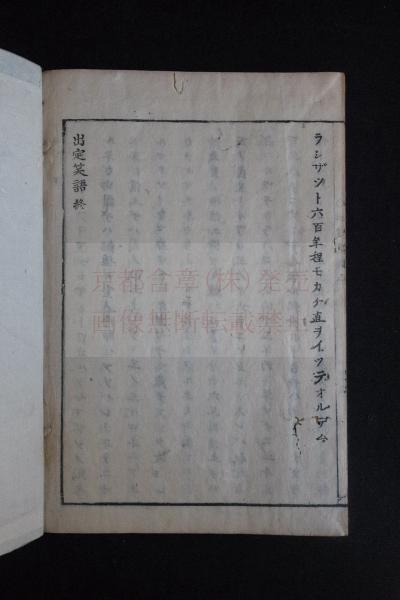 ラシザット六百年程モカケ直ヲイッテオルザム
出定笑語 終
京都含章(株)発売
画像無断転載禁止